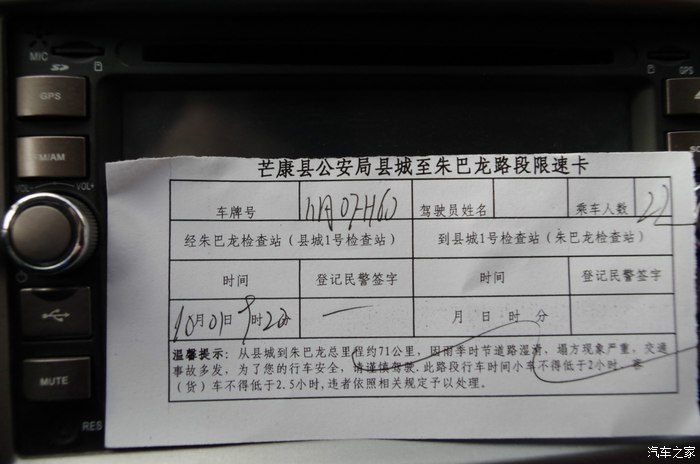 MIC
GPS
FM/AM
VOL-
VOL+
MUTE
RES
GPS
芒康县公安局县城至朱巴龙路段限速卡
车牌号 驾驶员姓名 乘车人数
经朱巴龙检查站（县城1号检查站） 到县城1号检查站（朱巴龙检查站）
时间 登记民警签字 时间 登记民警签字
10月01日9时20分 月 日 时 分
温馨提示：从县城到朱巴龙总里程约71公里，因雨季时节道路湿滑，塌方现象严重，交通
事故多发，为了您的行车安全，请谨慎驾驶.此路段行车时间小车不得低于2小时，客
（货）车不得低于2.5小时,违者依照相关规定予以处理。
汽车之家